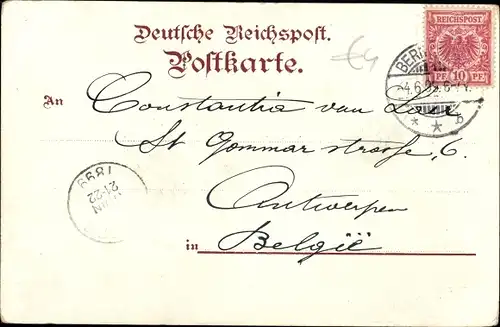 Deutsche Reichspost.
Postkarte.
€4
REICHSPOST
PF 10 PF
4.6.99. 8-
* * b
An Constantia van
St Gommar strasse, 6.
Antwerpen
in België
1899
21-22
JUIN